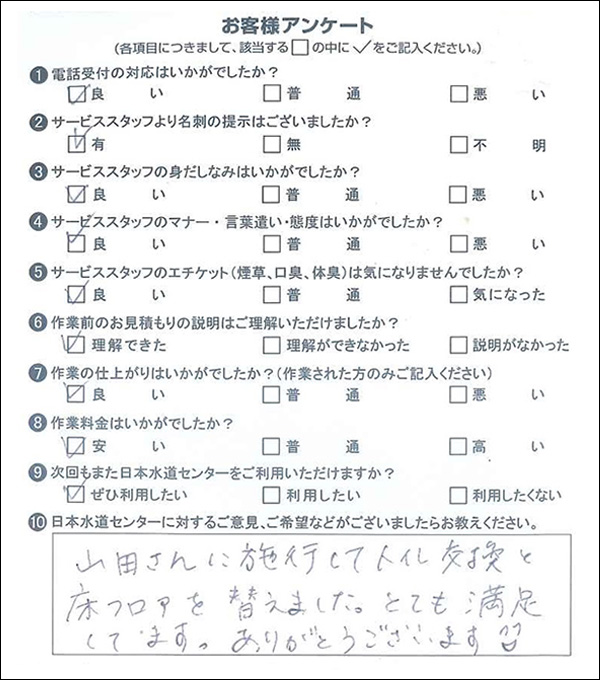 お客様アンケート
(各項目につきまして、該当する□の中に✓をご記入ください。)
❶ 電話受付の対応はいかがでしたか?
☑良い □普通 □悪い
❷ サービススタッフより名刺の提示はございましたか?
☑有 □無 □不明
❸ サービススタッフの身だしなみはいかがでしたか?
☑良い □普通 □悪い
❹ サービススタッフのマナー・言葉遣い・態度はいかがでしたか?
☑良い □普通 □悪い
❺ サービススタッフのエチケット(煙草、口臭、体臭)は気になりませんでしたか?
☑良い □普通 □気になった
❻ 作業前のお見積もりの説明はご理解いただけましたか?
☑理解できた □理解ができなかった □説明がなかった
❼ 作業の仕上がりはいかがでしたか?(作業された方のみご記入ください)
☑良い □普通 □悪い
❽ 作業料金はいかがでしたか?
☑安い □普通 □高い
❾ 次回もまた日本水道センターをご利用いただけますか?
☑ぜひ利用したい □利用したい □利用したくない
❿ 日本水道センターに対するご意見、ご希望などがございましたらお教えください。
山田さんに施行してトイレ交換と
床フロアを替えました。とても満足
してます。ありがとうございます